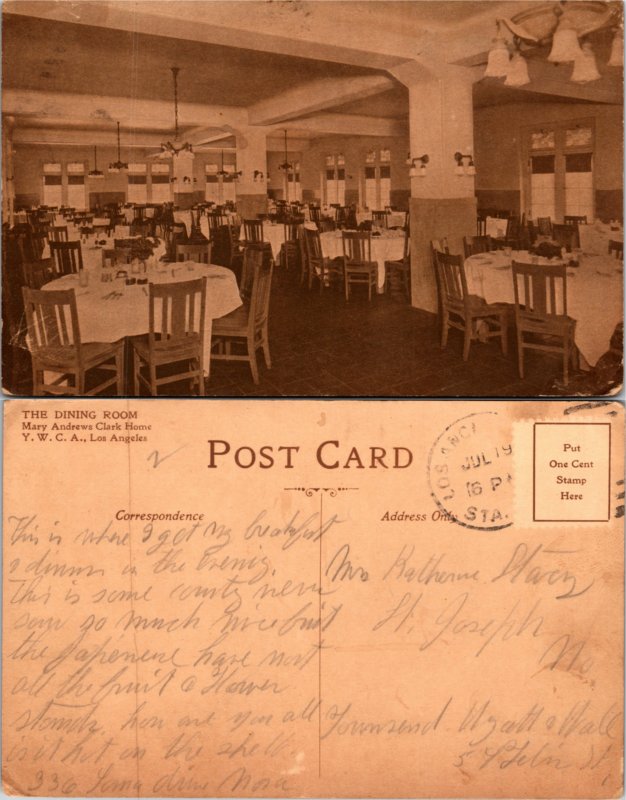 THE DINING ROOM
Mary Andrews Clark Home
Y. W. C. A., Los Angeles
POST CARD
Correspondence
Address Only
Put
One Cent
Stamp
Here
LOS ANG
JUL 19
STA.
This is where I got my breakfast
& dinner in the evenig.
This is some county never
saw so much nice fruit
the Japeneese have most
all the fruit & flower
stands. how are you all
is it hot on the
336 Loma drive Nora
Mrs Katherine Stacy
St. Joseph
Mo
Townsend Wyatt & Wall
5 St